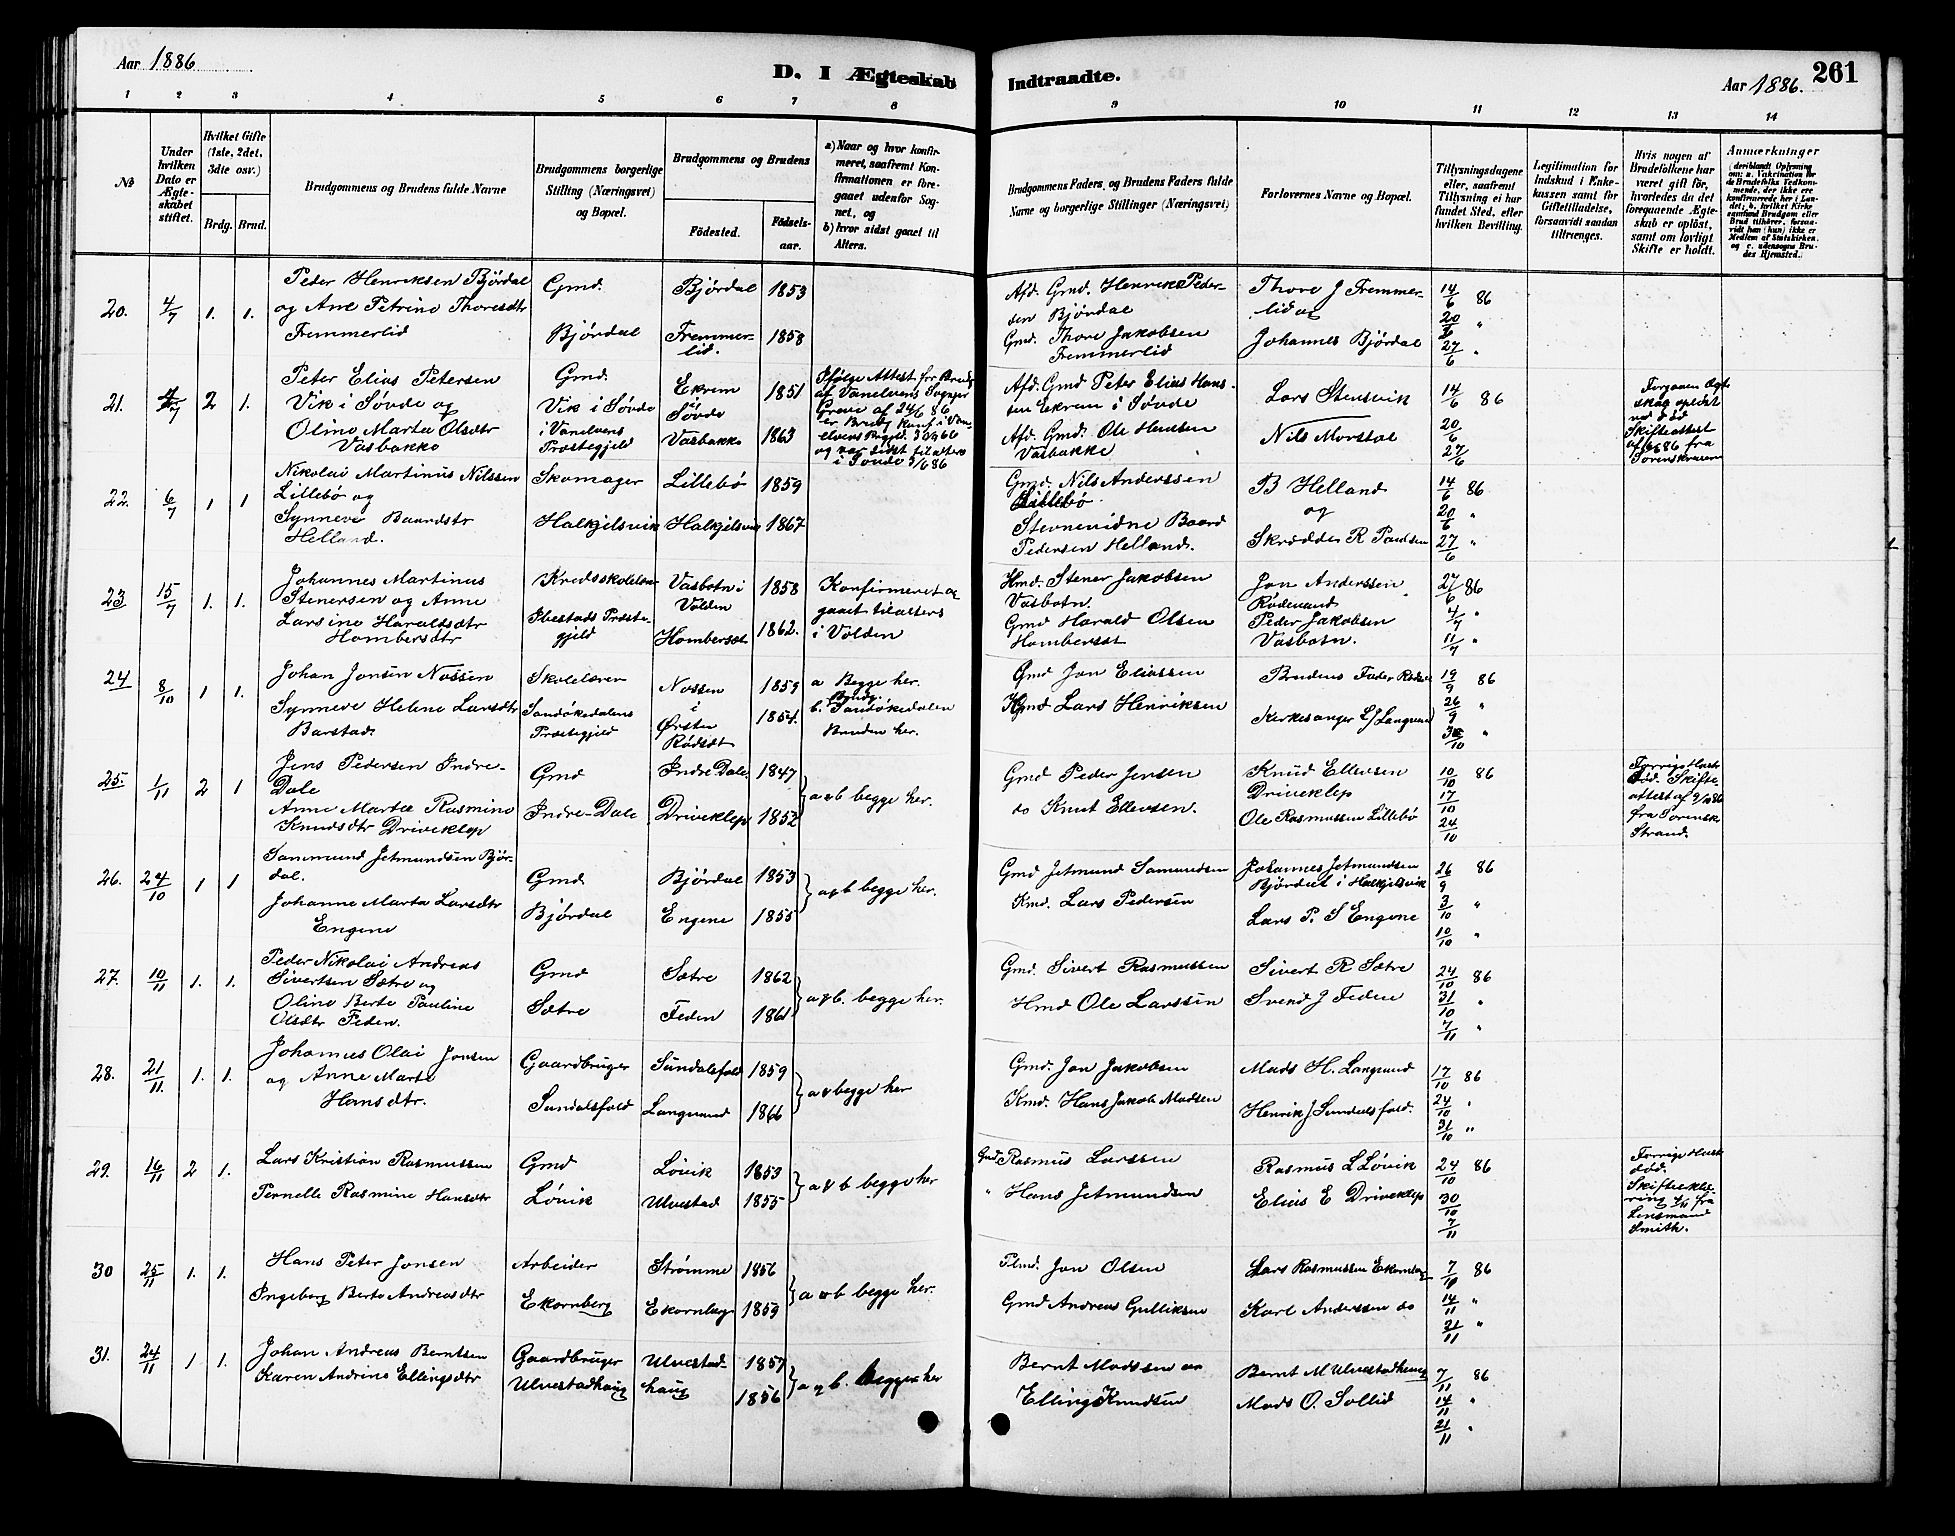 Aar 1886
D. I Ægteskab
Indtraadte.
Aar 1886.
261
1 2 3 4 5 6 7 8 9 10 11 12 13 14
№
Under hvilken Dato er Ægteskabet stiftet.
Hvilket Gifte (1ste, 2det, 3die osv.)
Brdg. Brud.
Brudgommens og Brudens fulde Navne
Brudgommens borgerlige Stilling (Næringsvei) og Bopæl.
Brudgommens og Brudens
Fødested.
Fødsels-aar.
a) Naar og hvor konfirmeret, saafremt Konfirmationen er foregaaet udenfor Sognet, og
b) hvor sidst gaaet til Alters.
Brudgommens Faders, og Brudens Faders fulde Navne og borgerlige Stillinger (Næringsvei)
Forlovernes Navne og Bopæl.
Tillysningsdagene eller, saafremt Tillysning ei har fundet Sted, efter hvilken Bevilling.
Legitimation for Indskud i Enkekassen samt for Giftetilladelse, forsaavidt saadan tiltrænges.
Hvis nogen af Brudefolkene har været gift før, hvorledes da det foregaaende Ægteskab er opløst, samt om lovligt Skifte er holdt.
Anmærkninger
(deriblandt Oplysning om: a. Vakcination for de Brudefolks Vedkommende, der ikke ere konfirmerede her i Landet; b. hvilket Kirkesamfund Brudgom eller Brud tilhører, forsaavidt han (hun) ikke er Medlem af Statskirken, og c. udensogns Brudes Hjemsted.)
20. 4/7 1. 1.
Peder Henriksen Bjørdal
og Ane Petrine Thoresdtr
Fremmerlid
Gmd.
Bjørdal
Bjørdal 1853
Fremmer-
lid. 1858
Afd. Gmd. Henrik Peder-
sen Bjørdal
Gmd. Thore Jakobsen
Fremmerlid
Thore J Fremmer-
lid og
Johannes Bjørdal
14/6 86
20/6 "
27/6 "
21. 4/7 2 1.
Peter Elias Petersen
Vik i Søvde og
Oline Marta Olsdtr
Vasbakke
Gmd.
Vik i Søvde
i Vanelvens
Præstegjeld
Ekrem
i
Søvde 1851
Vasbakke 1863
Ifølge Attest fra
af Vanelvens Sogne
af 24/6 86
er Brudg konf i Van-
elvens
og var sidst tilalters
i Søvde 3/6 86
Afd. Gmd Peter Elias Han-
sen Ekrem i Søvde
Afd. Gmd. Ole Hansen
Vasbakke
Lars Stensvik
Nils Morstøl
14/6 86
20/6
27/6
Forgaaen Ægte
skab opløst
ved Død
Skifteattest
fra
Sorenskriveren
22. 6/7 1 1
Nikolai Martinus Nilssen
Lillebø og
Synneve Baardsdtr
Helland.
Skomager
Halkjelsvik
Lillebø 1859
Halkjelsvik 1867
Gmd. Nils Anderssen
Lillebø.
Stevnevidne Baard
Pedersen Helland.
B Helland
og
Skrædder R Paulsen
14/6 86
20/6 "
27/6 "
23 15/7 1. 1.
Johannes Martinus
Stenersen og Anne
Larsine Haraldsdtr
Hombersdtr
Kredsskolelærer
Ibestads Præste-
gjeld
Vasbotn i
Volden 1858
Hombersæt 1862.
Konfirmeret og
gaaet tilalters
i Volden
Hmd. Stener Jakobsen
Vasbotn.
Gmd Harald Olsen
Hombersæt
Jon Anderssen
Rødevand
Peder Jakobsen
Vasbotn.
27/6 86
4/7 "
11/7 "
24 8/10 1 1.
Johan Jonsen Nossen
Synneve Helene Larsdtr
Barstad.
Skolelærer
Sandøkedalens
Præstegjeld
Nossen
i
Ørsten
Rødsæt
1859
1854.
a Begge her.
b. Brudg. Sandøkedalen
Bruden her.
Gmd Jon Eliassen
Kmd Lars Henriksen
Brudens Fader
Kirkesanger L J Langvand
19/9 86
26/9 "
3/10 "
25. 1/11 2 1
Jens Pedersen Indre-
Dale
Anne Martæ Rasmine
Knudsdtr Driveklep
Gmd
Indre-Dale
Indre Dale. 1847
Driveklep 1852
a & b begge her.
Gmd Peder Jensen
do Knut Ellevsen.
Knud Ellevsen
Driveklep
Ole Rasmussen Lillebø
10/10 86
17/10
24/10
Forrige Hust
død. Skifte
attest af 9/10 86
fra Sorensk
Strand.
26. 24/10 1 1
Sammund Jetmundsen Bjør-
dal.
Johanne Marta Larsdtr
Engene
Gmd
Bjørdal
Bjørdal 1853
Engene 1855
a & b begge her.
Gmd Jetmund Samundsen
Kmd. Lars Pedersen
Johannes Jetmundsen
Bjørdal i Halkjelsvik
Lars P. S Engene
26/9 86
3/10 "
10/10 "
27. 10/11 1. 1.
Peder Nikolai Andreas
Sivertsen Sætre og
Oline Berte Pauline
Olsdtr Feden.
Gmd
Sætre
Sætre 1862
Feden 1861
a & b. begge her.
Gmd. Sivert Rasmussen
Hmd Ole Larssen
Sivert R Sætre
Svend J Feden
24/10 86
31/10 "
7/11 "
28. 21/11. 1. 1.
Johannes Olai Jonsen
og Anne Marte
Hansdtr.
Gaardbruger
Sundalsfold
Sundalsfold 1859
Langvand 1866
a & begge her
Gmd. Jon Jakobsen
Kmd. Hans Jakob Madsen
Mads H. Langvand
Henrik J Sundalsfold.
17/10 86
24/10 "
31/10 "
29. 16/11 2 1.
Lars Kristian Rasmussen
Pernelle Rasmine Hansdtr
Gmd
Løvik
Løvik 1859
Ulvestad 1855
a & b begge her
Gmd. Rasmus Larssen
" Hans Jetmundsen
Rasmus L Løvik
Elias E Driveklep
24/10 86
30/10
7/11
Forrige Hust
død.
Skifteerklæ-
ring fra
Lensmand
Smith.
30 25/11 1. 1.
Hans Peter Jonsen
Ingeborg Berte Andreasdtr
Arbeider
Ekornberg
Strømme 1856
Ekornberg 1859
a & b begge her.
Plmd. Jon Olsen
Gmd Andreas Gulliksen
Lars Rasmussen Ekornberg
Karl Anderssen do
7/10 86
14/11 "
21/11 "
31. 24/11 1 1.
Johan Andreas Berntsen
Karen Andrine Ellingsdtr
Gaardbruger
Ulvestadhaug
Ulvestad- 1857
haug 1856
a & b. begge her
Bernt Madssen
Elling Knudsen
Bernt M Ulvestadhaug
Mads O. Sollid
7/11 86
14/11 "
21/11 "